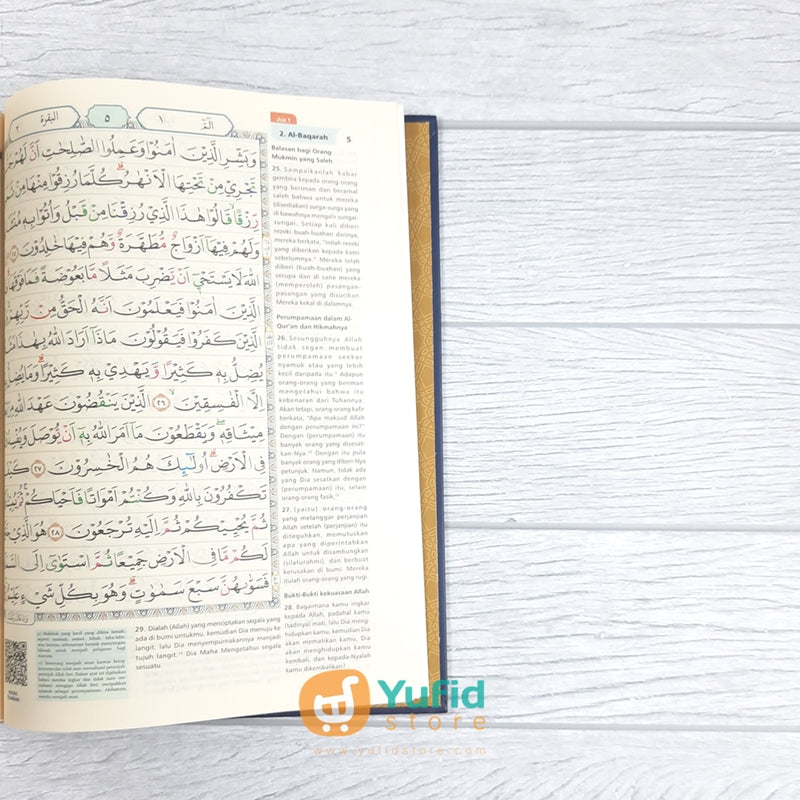 البقرة ٢
٥
الم ١
Juz 1
2. Al-Baqarah 5
وَبَشِّرِ الَّذِيْنَ اٰمَنُوْا وَعَمِلُوا الصّٰلِحٰتِ اَنَّ لَهُمْ
تَجْرِيْ مِنْ تَحْتِهَا الْاَنْهٰرُ ۗ كُلَّمَا رُزِقُوْا مِنْهَا مِنْ
رِّزْقًا ۙ قَالُوْا هٰذَا الَّذِيْ رُزِقْنَا مِنْ قَبْلُ وَاُتُوْا بِهٖ
وَلَهُمْ فِيْهَآ اَزْوَاجٌ مُّطَهَّرَةٌ وَّهُمْ فِيْهَا خٰلِدُوْنَ
اللّٰهَ لَا يَسْتَحْيٖٓ اَنْ يَّضْرِبَ مَثَلًا مَّا بَعُوْضَةً فَمَا فَوْقَهَا
الَّذِيْنَ اٰمَنُوْا فَيَعْلَمُوْنَ اَنَّهُ الْحَقُّ مِنْ رَّبِّهِمْ
الَّذِيْنَ كَفَرُوْا فَيَقُوْلُوْنَ مَاذَآ اَرَادَ اللّٰهُ بِهٰذَا
يُضِلُّ بِهٖ كَثِيْرًا وَّيَهْدِيْ بِهٖ كَثِيْرًا ۗ وَمَا يُضِلُّ
اِلَّا الْفٰسِقِيْنَ ۙ ٢٦ الَّذِيْنَ يَنْقُضُوْنَ عَهْدَ اللّٰهِ مِنْ
مِيْثَاقِهٖ ۖ وَيَقْطَعُوْنَ مَآ اَمَرَ اللّٰهُ بِهٖٓ اَنْ يُّوْصَلَ
فِى الْاَرْضِ ۗ اُولٰۤىِٕكَ هُمُ الْخٰسِرُوْنَ ٢٧ كَيْفَ
تَكْفُرُوْنَ بِاللّٰهِ وَكُنْتُمْ اَمْوَاتًا فَاَحْيَاكُمْ ۚ ثُمَّ
ثُمَّ يُحْيِيْكُمْ ثُمَّ اِلَيْهِ تُرْجَعُوْنَ ٢٨ هُوَ الَّذِيْ
لَكُمْ مَّا فِى الْاَرْضِ جَمِيْعًا ثُمَّ اسْتَوٰٓى اِلَى
فَسَوّٰىهُنَّ سَبْعَ سَمٰوٰتٍ ۗ وَهُوَ بِكُلِّ شَيْءٍ عَلِيْمٌ
Balasan bagi Orang
Mukmin yang Saleh
25. Sampaikanlah kabar
gembira kepada orang-orang
yang beriman dan beramal
saleh bahwa untuk mereka
(disediakan) surga-surga yang
di bawahnya mengalir sungai-
sungai. Setiap kali diberi
rezeki buah-buahan darinya,
mereka berkata, “Inilah rezeki
yang diberikan kepada kami
sebelumnya.” Mereka telah
diberi (buah-buahan) yang
serupa dan di sana mereka
(memperoleh) pasangan-
pasangan yang disucikan.
Mereka kekal di dalamnya.
Perumpamaan dalam Al-
Qur’an dan Hikmahnya
26. Sesungguhnya Allah
tidak segan membuat
perumpamaan seekor
nyamuk atau yang lebih
kecil daripada itu. Adapun
orang-orang yang beriman
mengetahui bahwa itu
kebenaran dari Tuhannya.
Akan tetapi, orang-orang kafir
berkata, “Apa maksud Allah
dengan perumpamaan ini?”
Dengan (perumpamaan) itu
banyak orang yang disesat-
kan-Nya. Dengan itu pula
banyak orang yang diberi-Nya
petunjuk. Namun, tidak ada
yang Dia sesatkan dengan
(perumpamaan) itu, selain
orang-orang fasik,
27. (yaitu) orang-orang
yang melanggar perjanjian
Allah setelah (perjanjian) itu
diteguhkan, memutuskan
apa yang diperintahkan
Allah untuk disambungkan
(silaturahmi), dan berbuat
kerusakan di bumi. Mereka
itulah orang-orang yang rugi
Bukti-Bukti kekuasaan Allah
28. Bagaimana kamu ingkar
kepada Allah, padahal kamu
(tadinya) mati, lalu Dia meng-
hidupkan kamu, kemudian Dia
akan mematikan kamu, Dia
akan menghidupkan kamu
kembali, dan kepada-Nyalah
kamu dikembalikan?
29. Dialah (Allah) yang menciptakan segala yang
ada di bumi untukmu, kemudian Dia menuju ke
langit, lalu Dia menyempurnakannya menjadi
tujuh langit. Dia Maha Mengetahui segala
sesuatu.
Yufid
store
www.yufidstore.com